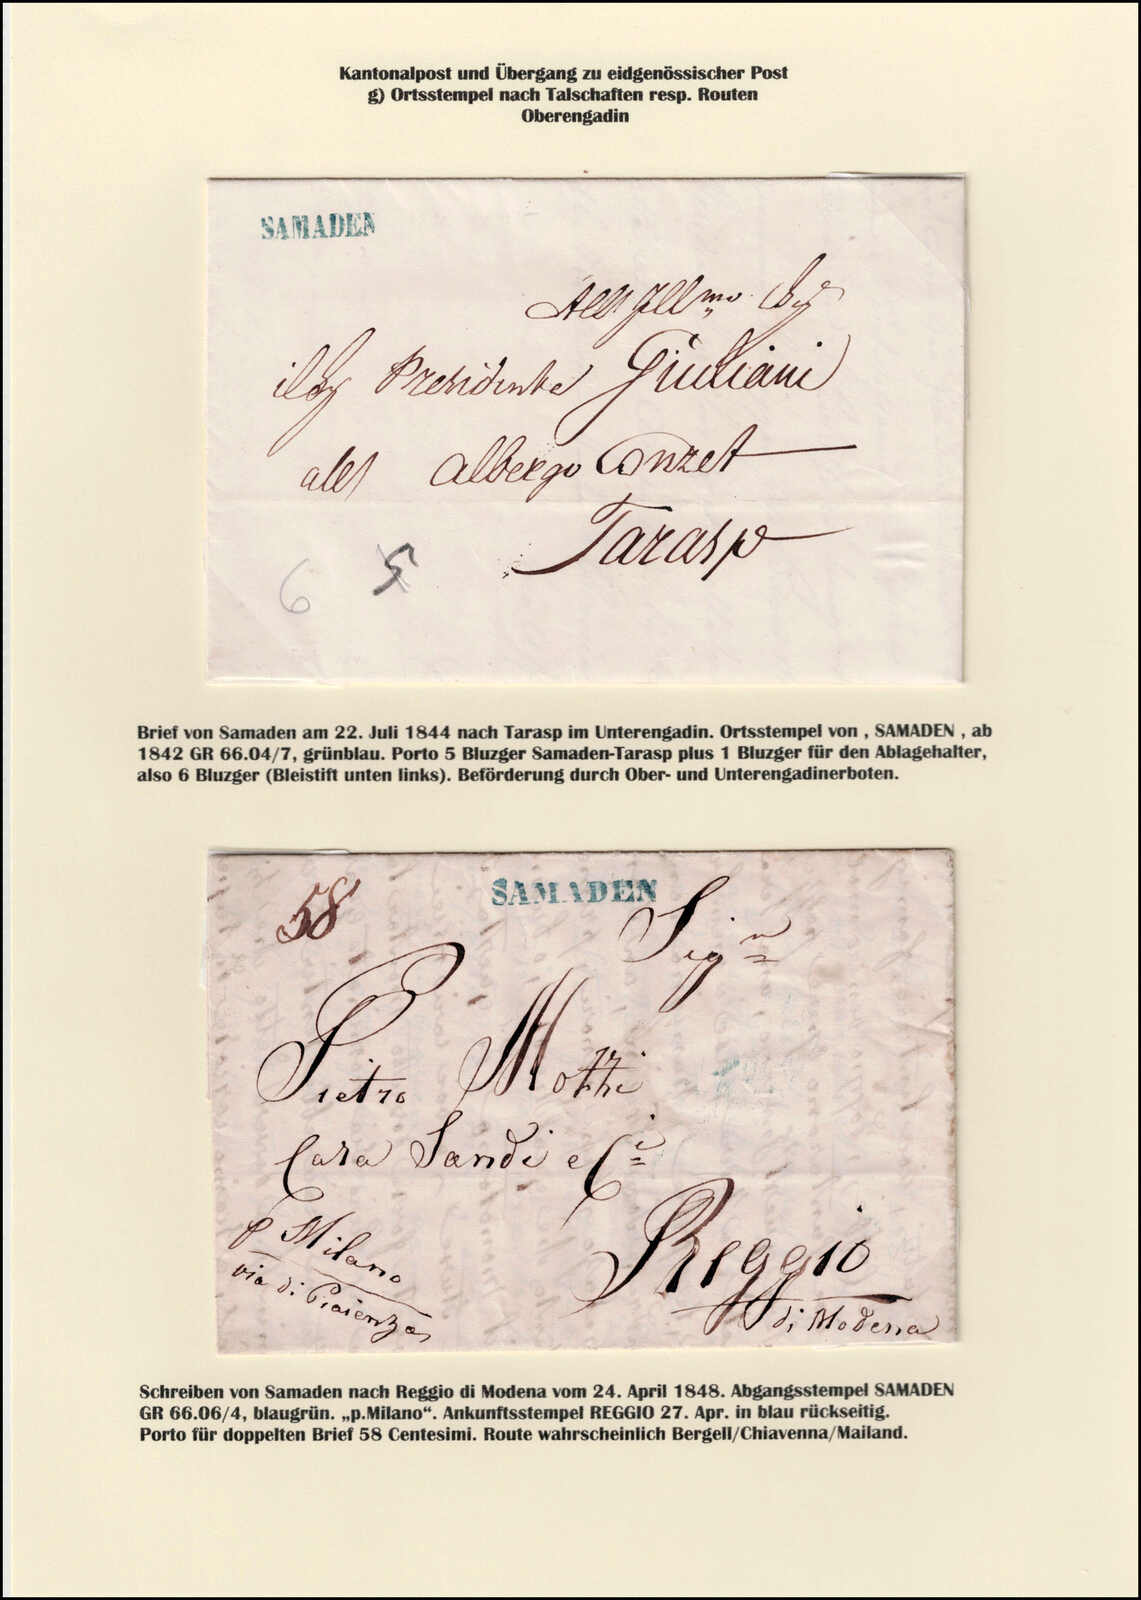 Kantonalpost und Übergang zu eidgenössischer Post
g) Ortsstempel nach Talschaften resp. Routen
Oberengadin
SAMADEN
All Illmo Sigr
il Sigr Presidente Giuliani
all Albergo Conzet
Tarasp
6 5
Brief von Samaden am 22. Juli 1844 nach Tarasp im Unterengadin. Ortsstempel von , SAMADEN , ab
1842 GR 66.04/7, grünblau. Porto 5 Bluzger Samaden-Tarasp plus 1 Bluzger für den Ablagehalter,
also 6 Bluzger (Bleistift unten links). Beförderung durch Ober- und Unterengadinerboten.
58 SAMADEN
Sign
Pietro Mozzi
Casa Sandi e Ci
p Milano
via di Piacenza
Reggio
di Modena
Schreiben von Samaden nach Reggio di Modena vom 24. April 1848. Abgangsstempel SAMADEN
GR 66.06/4, blaugrün. „p.Milano“. Ankunftsstempel REGGIO 27. Apr. in blau rückseitig.
Porto für doppelten Brief 58 Centesimi. Route wahrscheinlich Bergell/Chiavenna/Mailand.